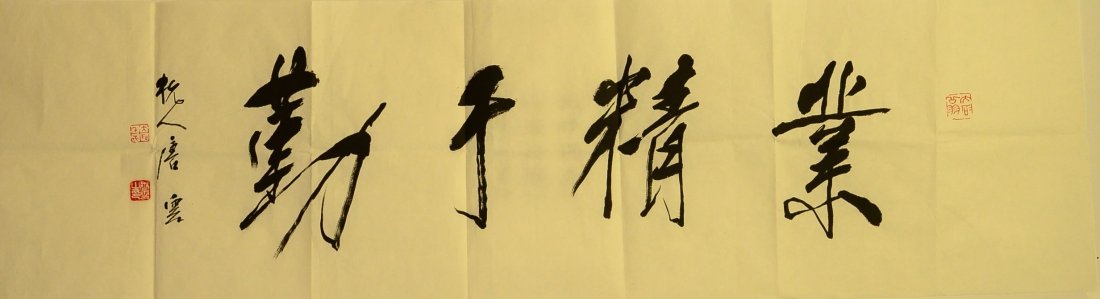 業精于勤
杭人唐雲